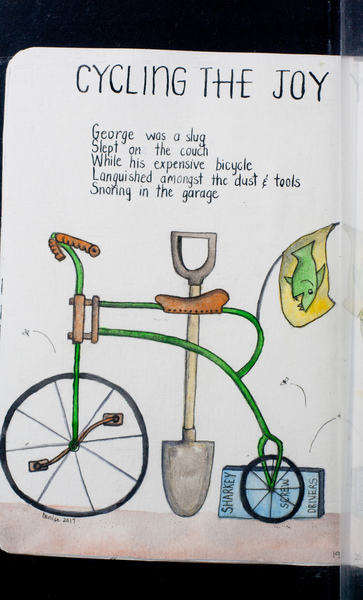 CYCLING THE JOY
George was a slug
Slept on the couch
While his expensive bicycle
Languished amongst the dust & tools
Snoring in the garage
SHARKEY
SCREW
DRIVERS
Denise 2017